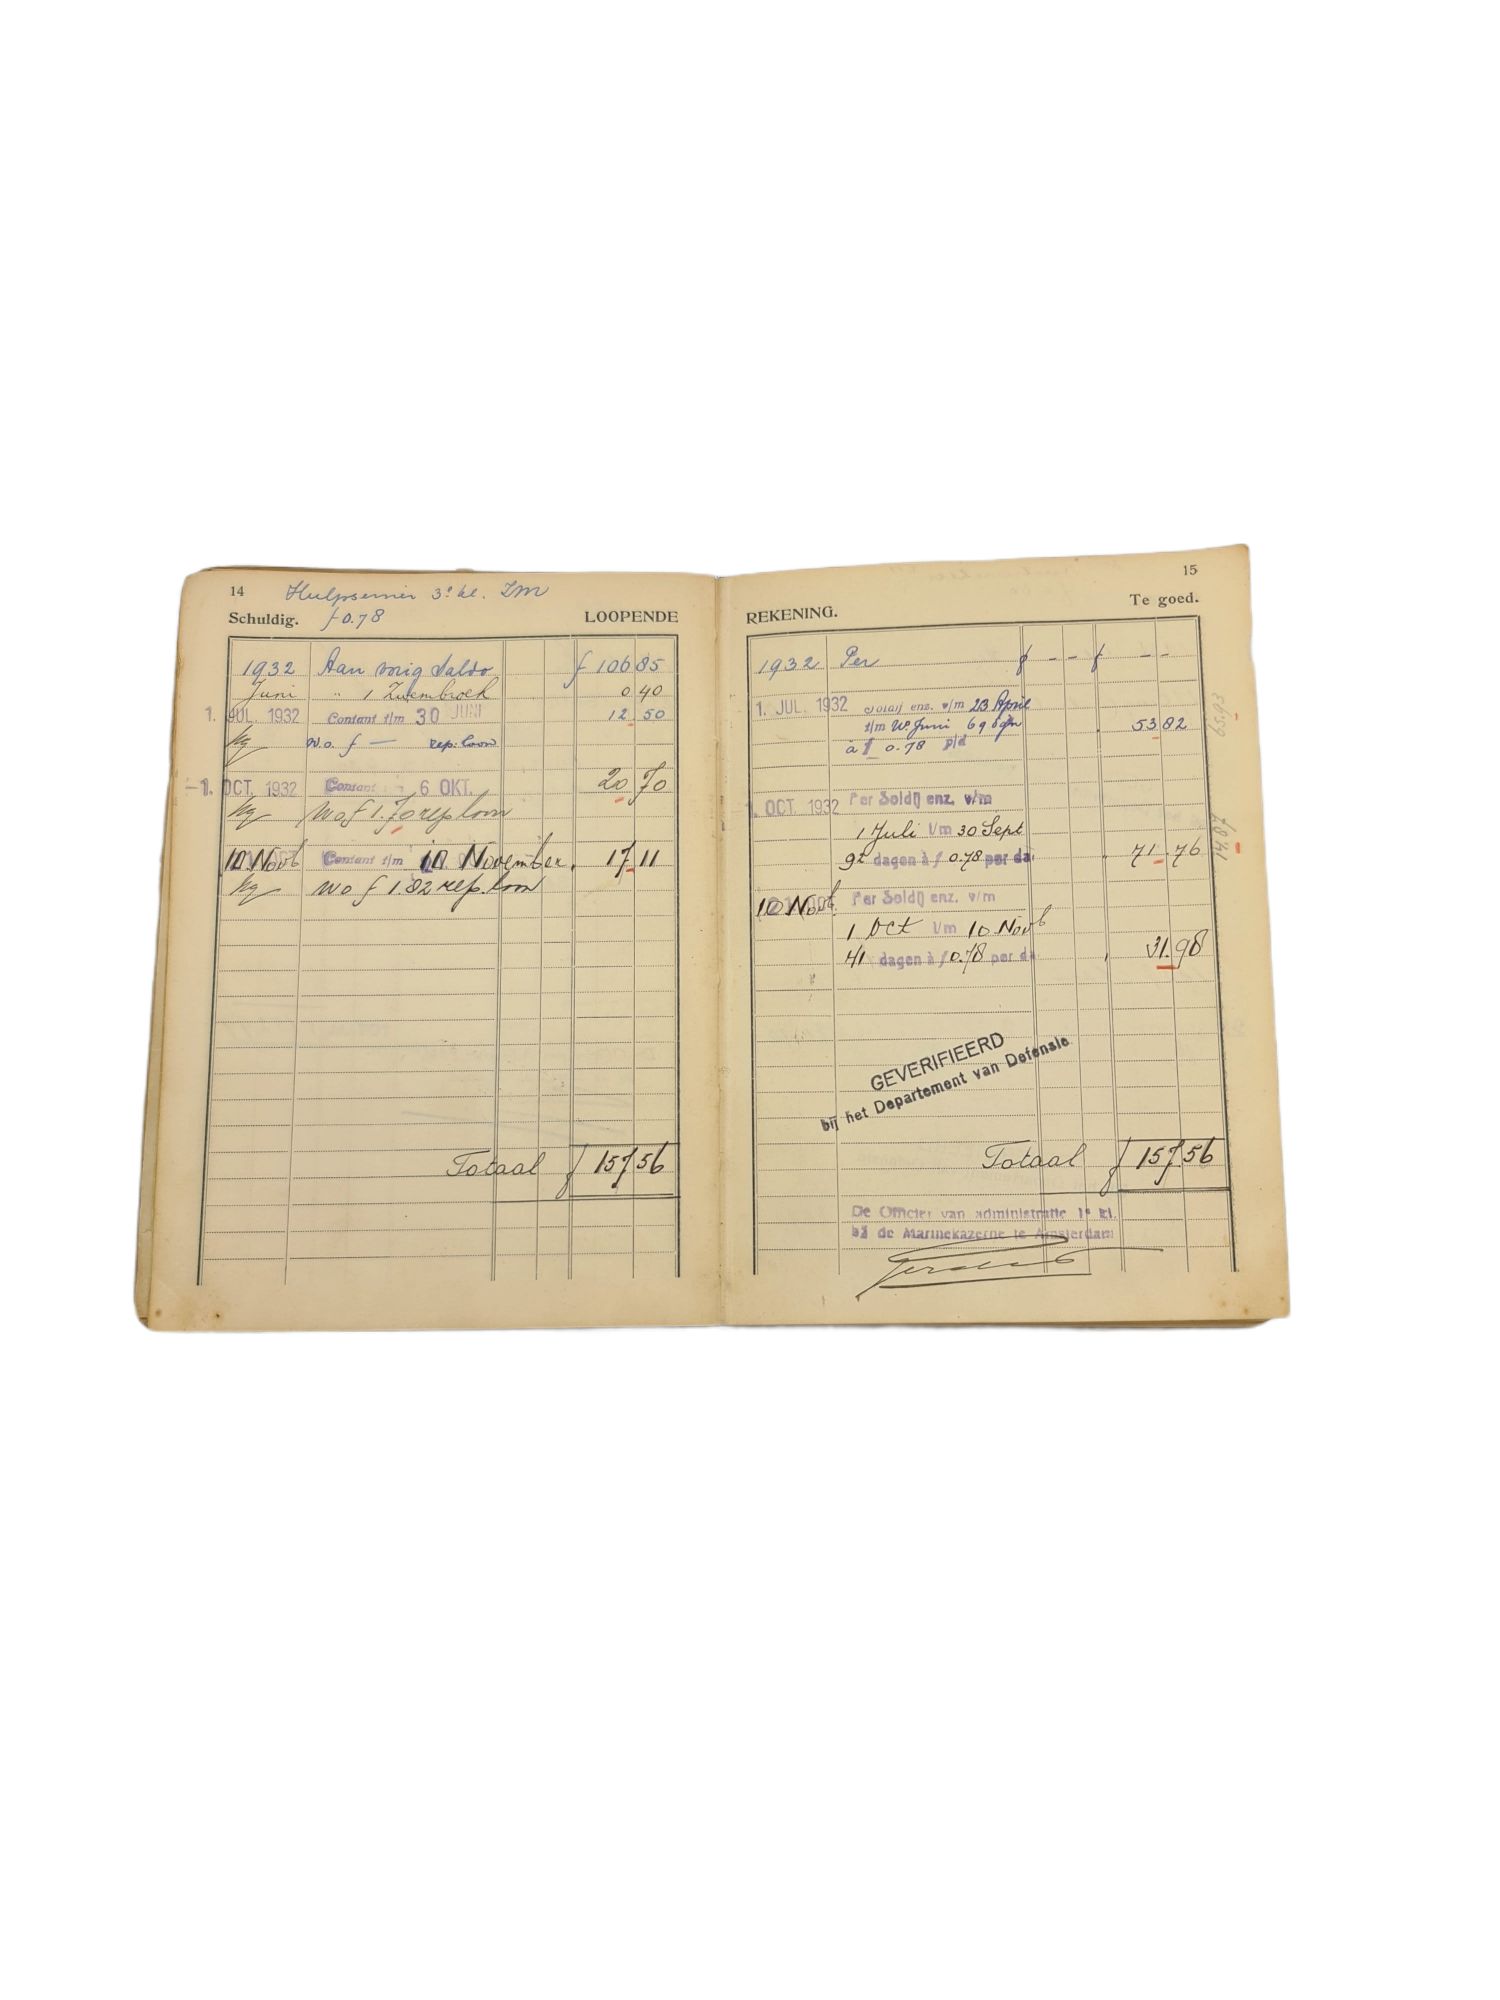 14
Hulpseiner 3e kl. ZM
Schuldig. f 0.78 LOOPENDE
1932 Aan vorig Saldo f 106 85
Juni " 1 Zwembroek 0 40
1. JUL. 1932 Contant t/m 30 JUNI 12 50
w.o. f — rep. loon
-1. OCT. 1932 Contant 6 OKT. 20 70
w o f 1.70 rep loon
10 Novb Contant t/m 10 November. 17 11
w o f 1.82 rep. loon
Totaal f 157 56
15
REKENING. Te goed.
1932 Per f - - f - -
1. JUL 1932 Soldij enz. v/m 23 April
t/m Juni 69 dgn 53 82
à f 0.78 p/d
65.93
1. OCT. 1932 Per Soldij enz. v/m
1 Juli t/m 30 Sept
92 dagen à f 0.78 per da. " 71.76
14.87
10 Novb. Per Soldij enz. v/m
1 Oct t/m 10 Novb
41 dagen à f 0.78 per da 31.98
GEVERIFIEERD
bij het Departement van Defensie
Totaal f 157 56
De Officier van administratie 1e kl.
bij de Marinekazerne te Amsterdam